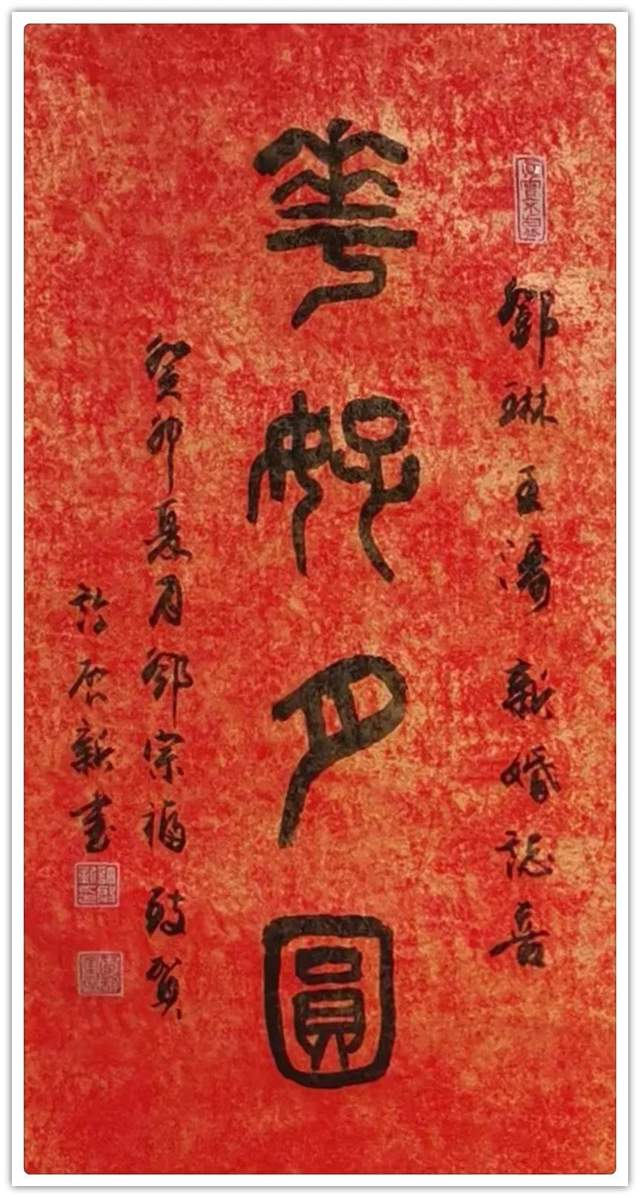 鄧琳王濤新婚誌喜
華好月圓
癸卯夏月鄧宗福致賀
啟新書